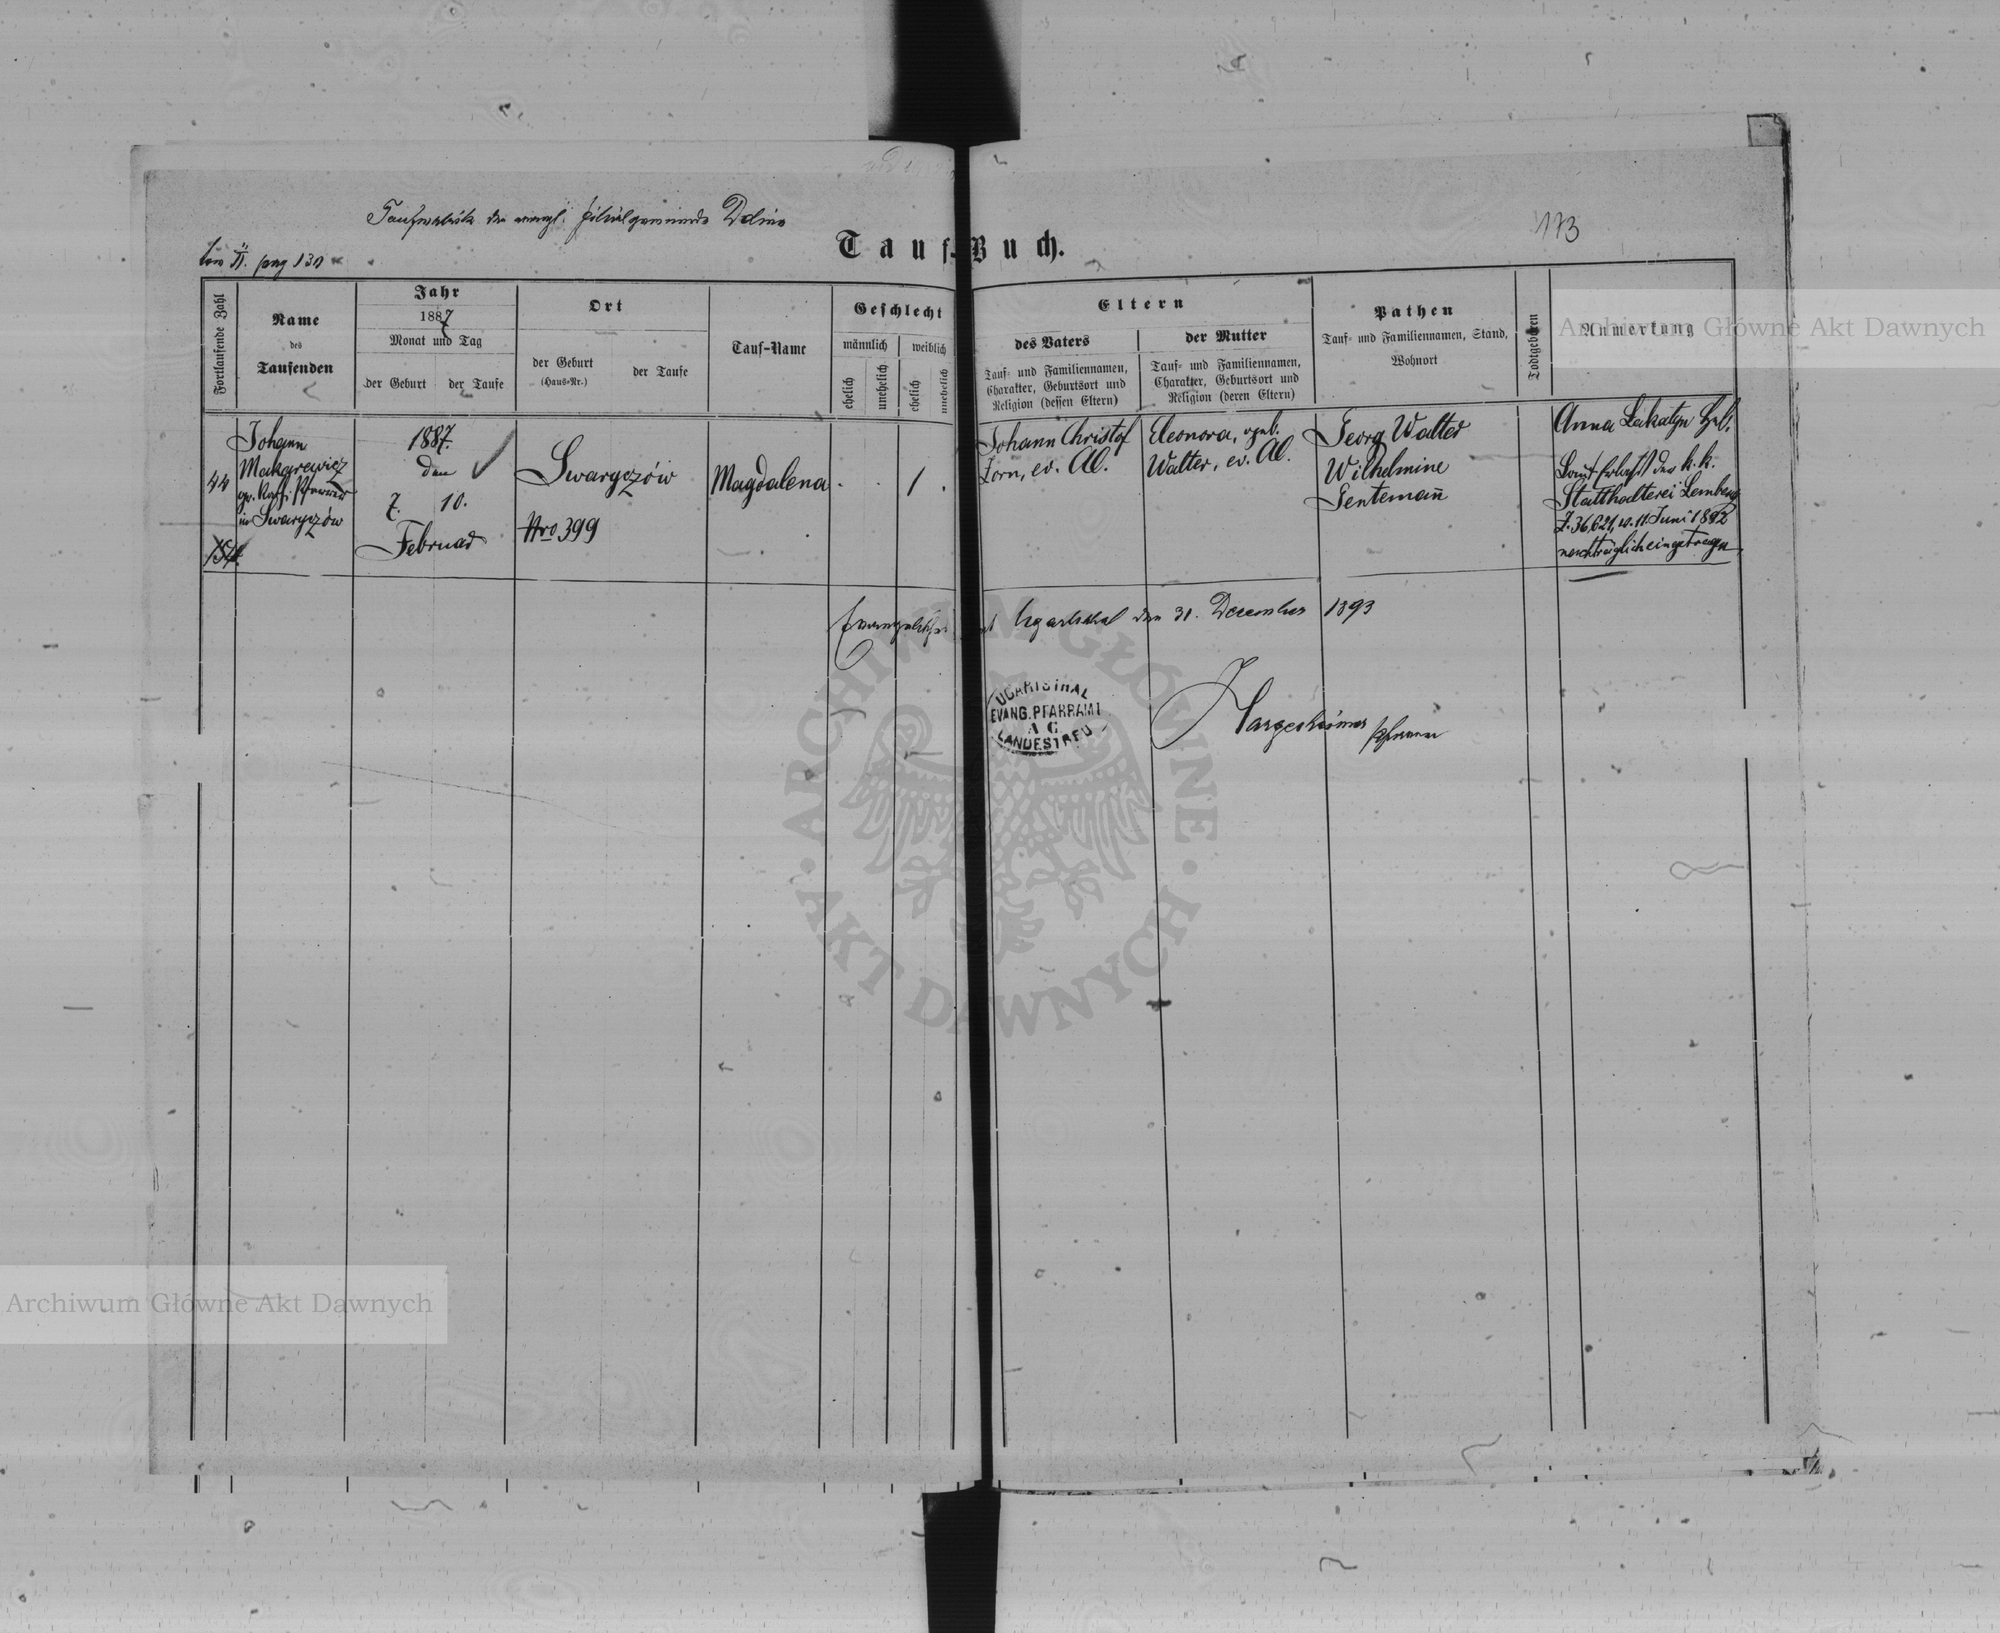 173
Taufmatrik der evangl. Filialgemeinde Dolina
Tauf-Buch.
tom II. pag 130
Fortlaufende Zahl
Name
des
Taufenden
Jahr
1887
Monat und Tag
der Geburt
der Taufe
Ort
der Geburt
(Haus-Nr.)
der Taufe
Tauf-Name
Geschlecht
männlich
weiblich
ehelich
unehelich
ehelich
unehelich
Eltern
des Vaters
Tauf- und Familiennamen,
Charakter, Geburtsort und
Religion (dessen Eltern)
der Mutter
Tauf- und Familiennamen,
Charakter, Geburtsort und
Religion (deren Eltern)
Pathen
Tauf- und Familiennamen, Stand,
Wohnort
Todtgeboren
Anmerkung
44
Johann
Makarewicz
gr. Kath. Pfarrer
in Swaryczów
1887.
den
7. 10.
Februar
Swaryczów
Nro 399
Magdalena
1
Johann Christof
Zorn, ev. AC.
Eleonora, geb.
Walter, ev. AC.
Georg Walter
Wilhelmine
Gentemañ
Anna Lakatyn Heb.
Laut Erlaß der k. k.
Statthalterei Lemberg
Z. 36,621, v. 11. Juni 1892
nachträglich eingetragen.
Ugartsthal den 31. December 1893
UGARTSTHAL
EVANG. PFARRAMT
A. C.
LANDESTREU
Hargesheimer
Pfarrer
Archiwum Główne Akt Dawnych
ARCHIWUM GŁÓWNE
AKT DAWNYCH
Archiwum Główne Akt Dawnych